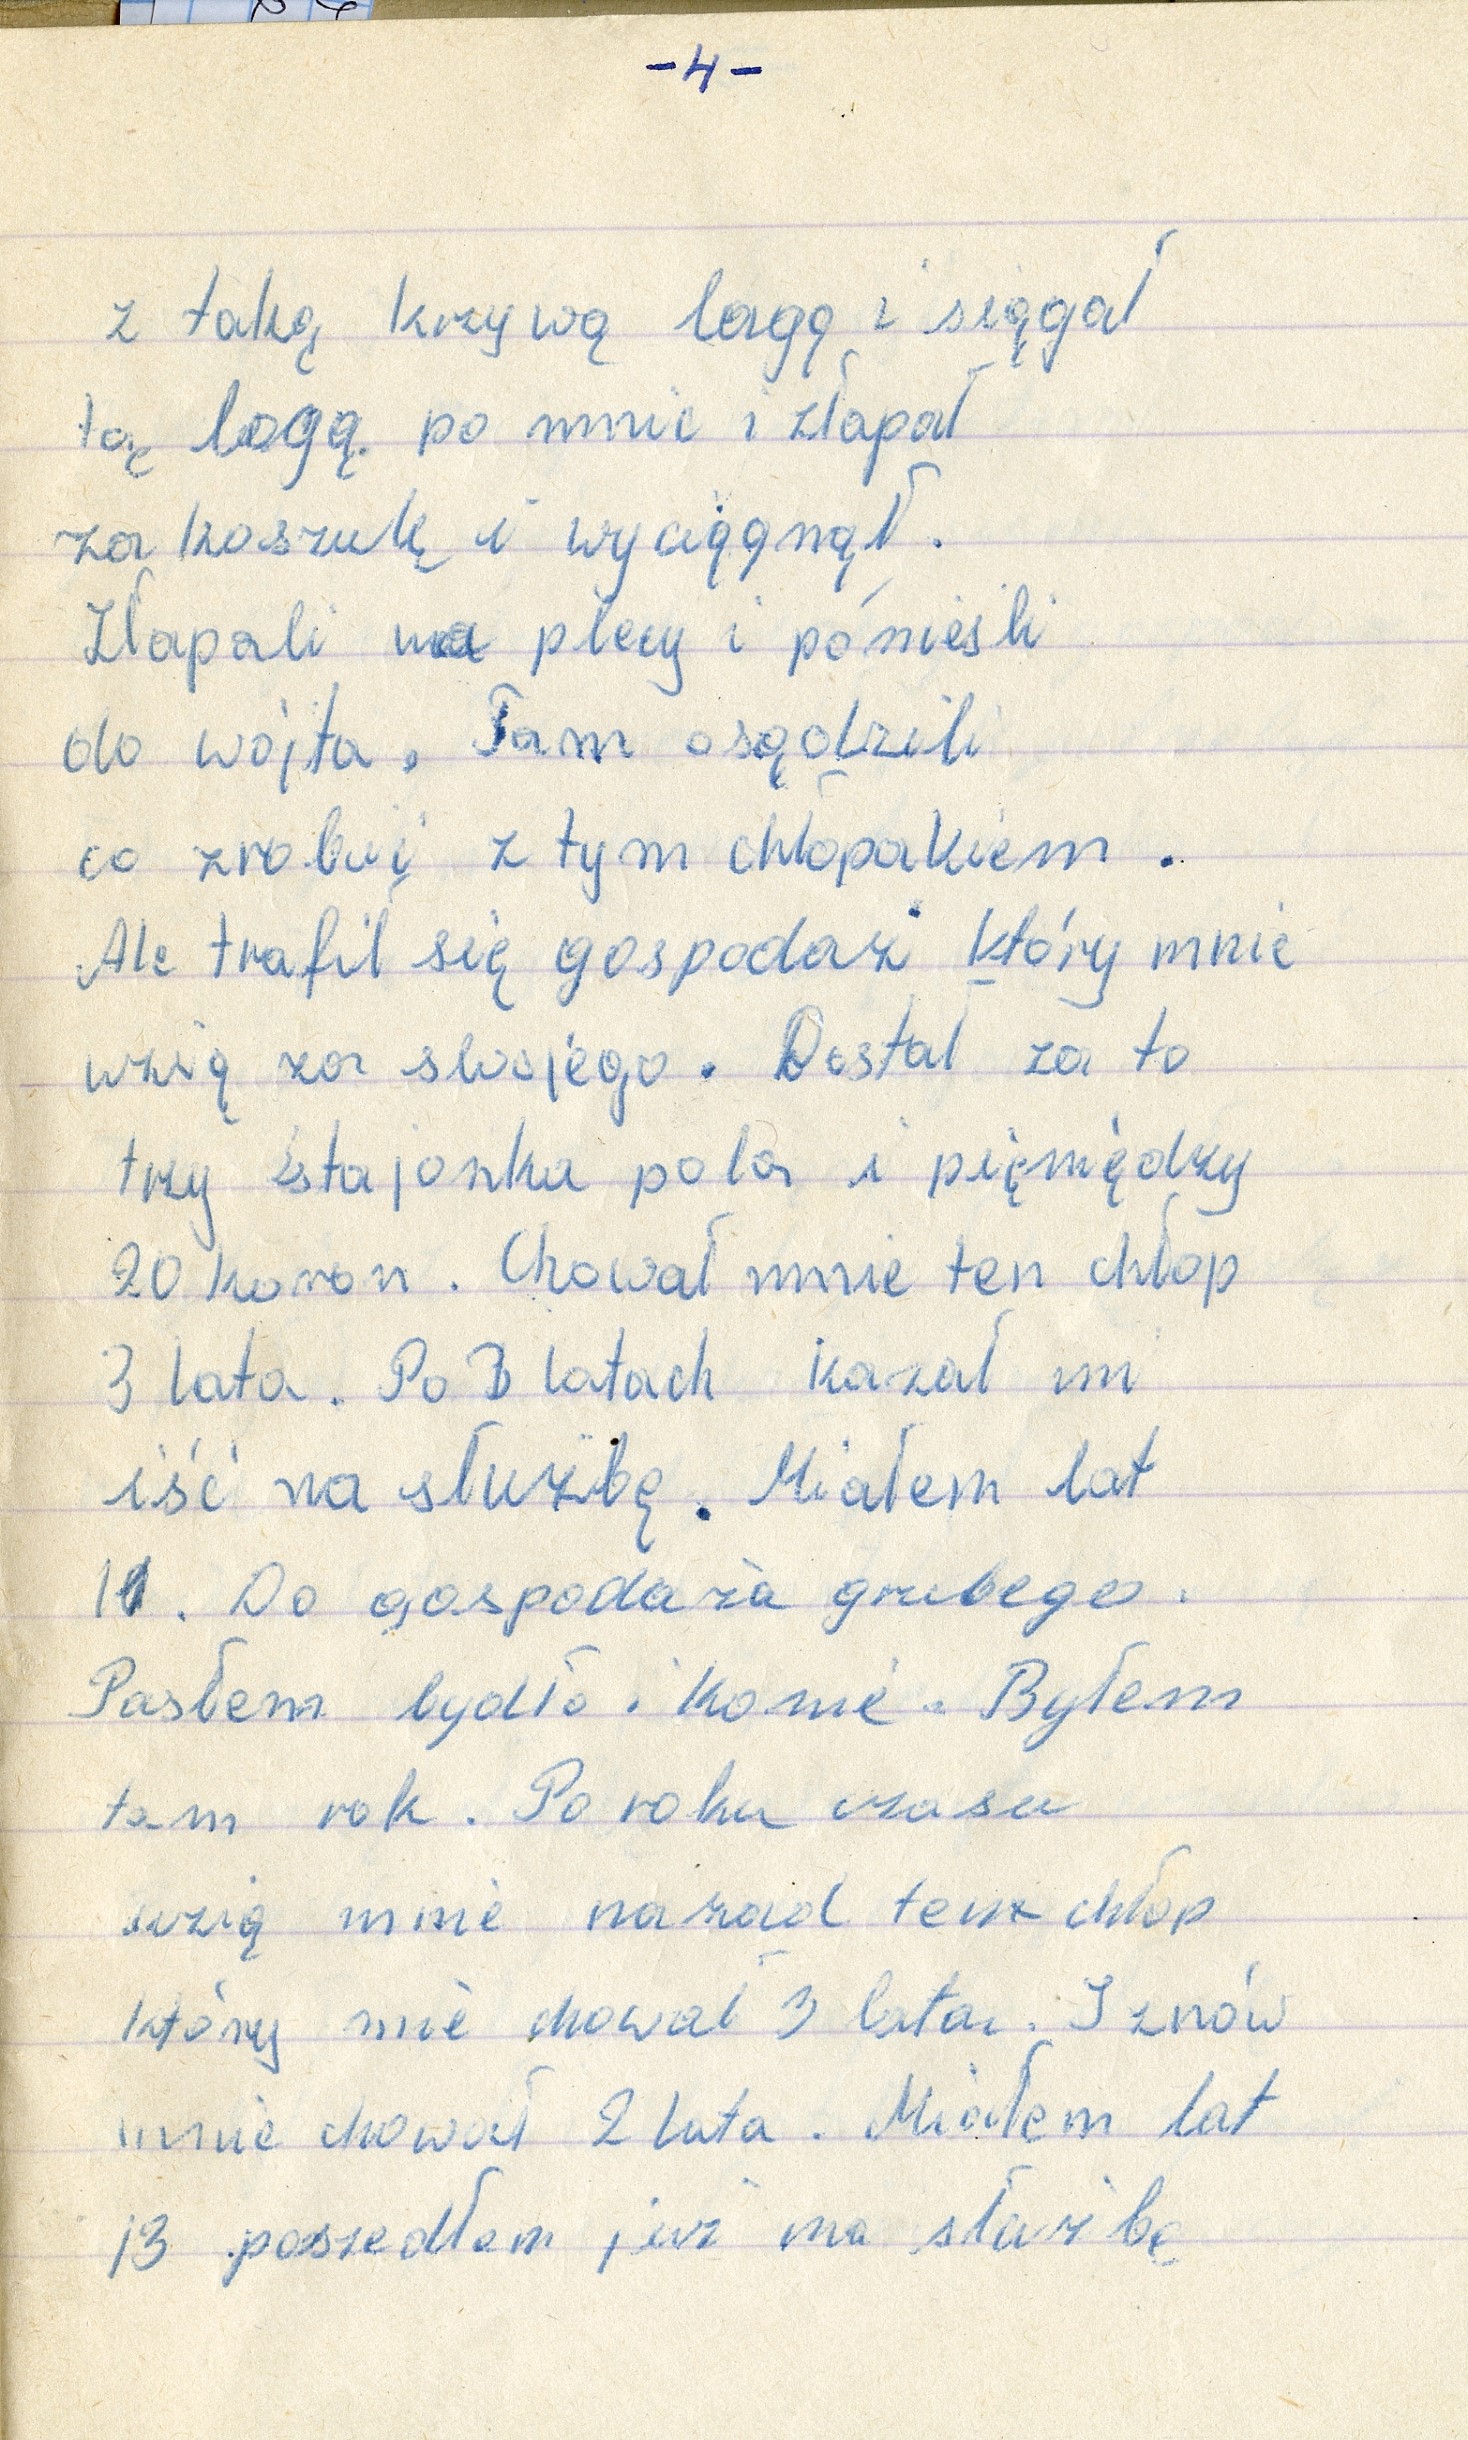 -4-
z taką krzywą lagą i siągał
tą lagą po mnie i złapał
za koszulę i wyciągnął.
Złapali na plecy i pónieśli
do wójta. Tam osądzili
co zrobić z tym chłopakiem.
Ale trafił się gospodaż który mnie
wzią za swojego. Dostał za to
trzy stajonka pola i pięniędzy
20 koron. Chował mnie ten chłop
3 lata. Po 3 latach kazał mi
iść na służbę. Miałem lat
11. Do gospodaża grubego.
Pasłem bydło i konie. Byłem
tam rok. Po roku czasu
wzią mnie nazad ten chłop
który mie chował 3 lata. I znów
mnie chował 2 lata. Miałem lat
13 poszedłem już na służbę